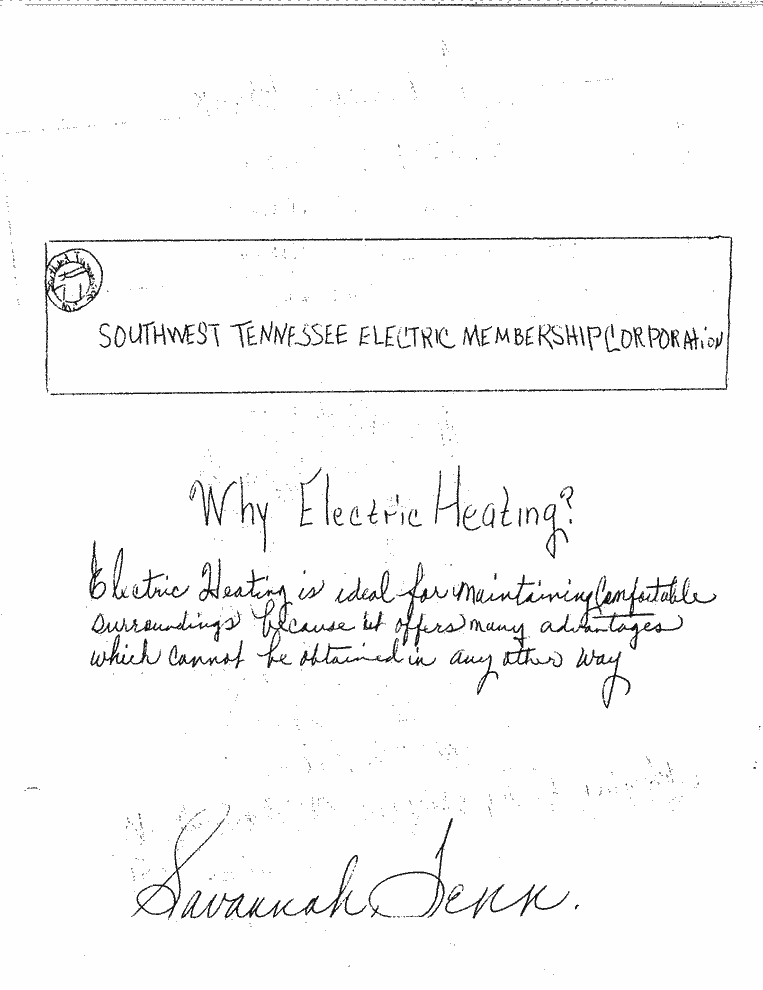 SOUTHWEST TENNESSEE ELECTRIC MEMBERSHIP CORPORATION
Why Electric Heating?
Electric Heating is ideal for maintaining Comfortable
surroundings because it offers many advantages
which cannot be obtained in any other way
Savannah, Tenn.